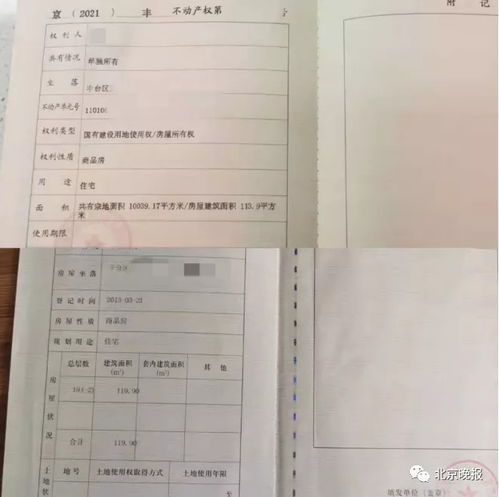 京 (2021) 丰 不动产权第 号
附 记
权利人
共有情况 单独所有
坐 落 丰台区
不动产单元号 110106
权利类型 国有建设用地使用权/房屋所有权
权利性质 商品房
用 途 住宅
面 积 共有宗地面积 10039.17平方米/房屋建筑面积 113.9平方米
使用期限
房屋坐落
登记时间 2013-03-21
房屋性质 商品房
规划用途 住宅
房屋状况 总层数 建筑面积(m²) 套内建筑面积(m²) 其 他
119.90
合计 119.90
土地状 地 号 土地使用权取得方式 土地使用年限
年
填发单位（盖章）
北京晚报